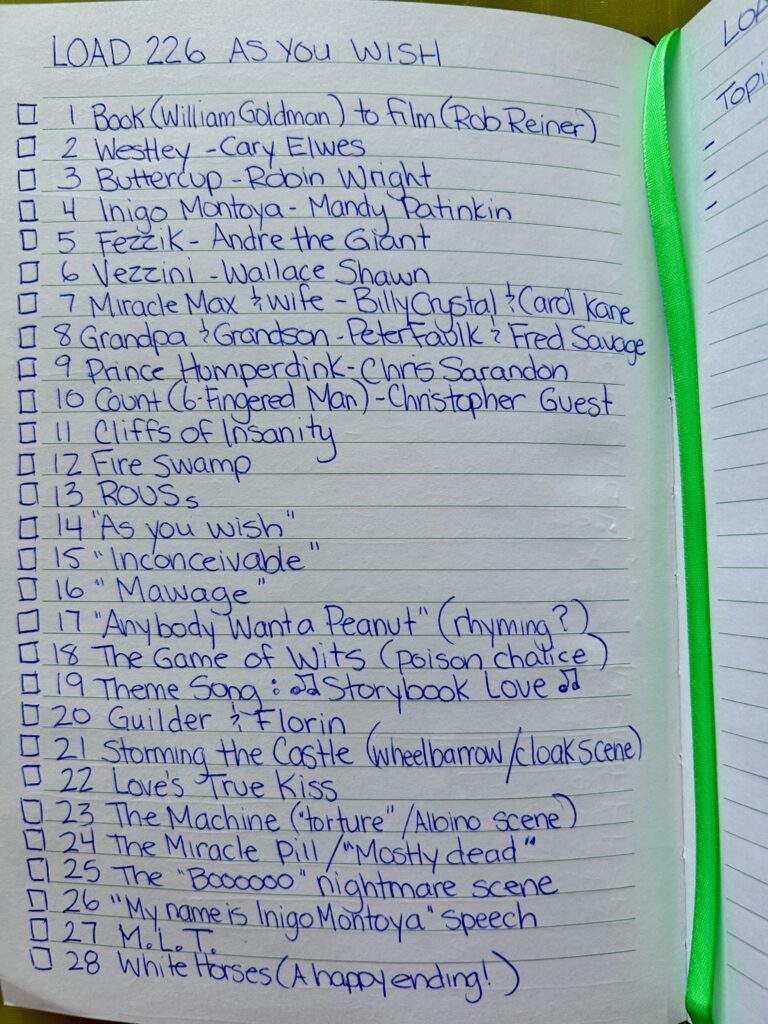 LOAD 226 AS YOU WISH
1 Book (William Goldman) to film (Rob Reiner)
2 Westley - Cary Elwes
3 Buttercup - Robin Wright
4 Inigo Montoya - Mandy Patinkin
5 Fezzik - Andre the Giant
6 Vezzini - Wallace Shawn
7 Miracle Max & Wife - Billy Crystal & Carol Kane
8 Grandpa & Grandson - Peter Faulk & Fred Savage
9 Prince Humperdink - Chris Sarandon
10 Count (6-Fingered Man) - Christopher Guest
11 Cliffs of Insanity
12 Fire Swamp
13 ROUSs
14 "As you wish"
15 "Inconceivable"
16 "Mawage"
17 "Anybody Want a Peanut" (rhyming?)
18 The Game of Wits (poison chalice)
19 Theme Song: ♫ Storybook Love ♫
20 Guilder & Florin
21 Storming the Castle (wheelbarrow/cloak scene)
22 Love's True Kiss
23 The Machine ("torture"/Albino scene)
24 The Miracle Pill/"Mostly dead"
25 The "Boooooo" nightmare scene
26 "My name is Inigo Montoya" speech
27 M.L.T.
28 White Horses (A happy ending!)
Topi